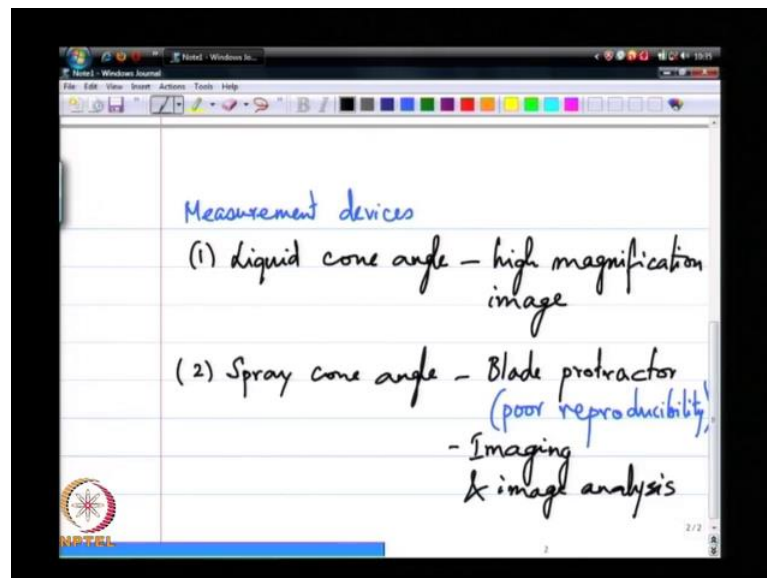 Note1 - Windows Jo...
10:15
Note1 - Windows Journal
File Edit View Insert Actions Tools Help
B I
Measurement devices
(1) Liquid cone angle - high magnification
image
(2) Spray cone angle - Blade protractor
(poor reproducibility)
- Imaging
& image analysis
NPTEL
2/2
2